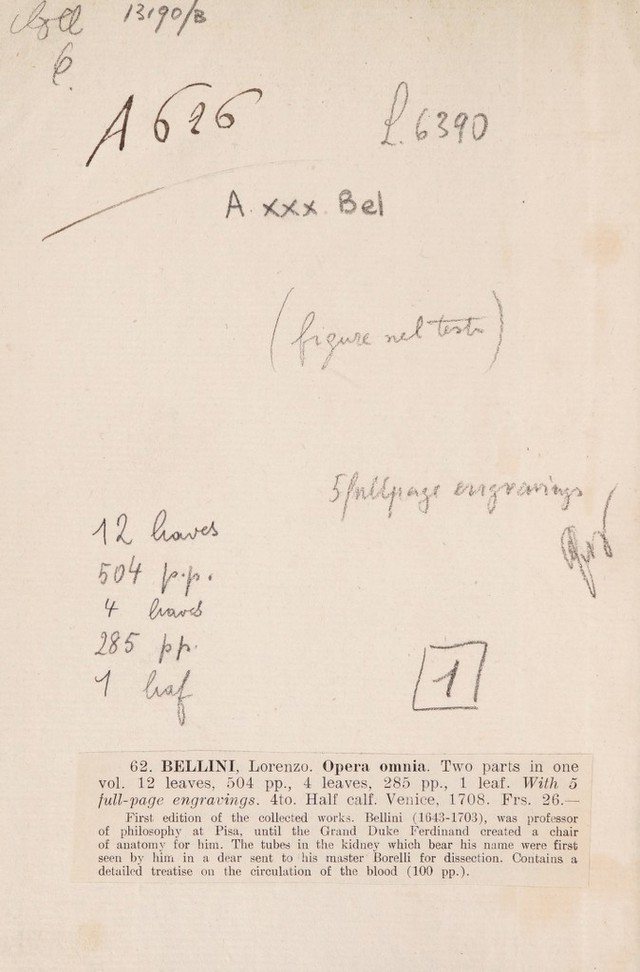 Coll 13190/B
C.
A 626
L. 6390
A. xxx. Bel
(figure nel testo)
5 fullpage engravings
12 leaves
504 p.p.
4 leaves
285 pp.
1 leaf
1
62. BELLINI, Lorenzo. Opera omnia. Two parts in one
vol. 12 leaves, 504 pp., 4 leaves, 285 pp., 1 leaf. With 5
full-page engravings. 4to. Half calf. Venice, 1708. Frs. 26.—
First edition of the collected works. Bellini (1643-1703), was professor
of philosophy at Pisa, until the Grand Duke Ferdinand created a chair
of anatomy for him. The tubes in the kidney which bear his name were first
seen by him in a dear sent to his master Borelli for dissection. Contains a
detailed treatise on the circulation of the blood (100 pp.).